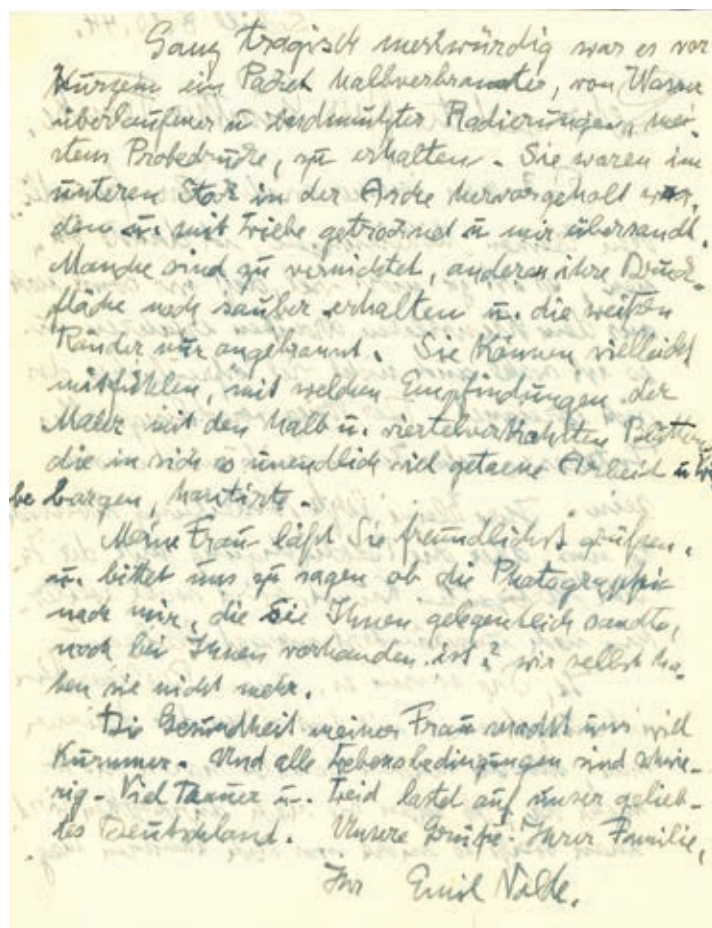 Ganz tragisch merkwürdig war es vor
Kurzem ein Packet halbverbrannter, von Wasser
überlaufener u beschmutzter Radierungen, mei-
stens Probedrucke, zu erhalten. Sie waren im
unteren Stock in der Asche hervorgeholt wor-
den u. mit Liebe getrocknet u mir übersandt.
Manche sind zu vernichtet, anderen ihre Druck-
fläche noch sauber erhalten u. die weißen
Ränder nur angebrannt. Sie können vielleicht
mitfühlen, mit welchen Empfindungen der
Maler mit den halb u. viertelverkohlten Blättern
die in sich so unendlich viel getaene Arbeit u Lie
be bargen, hantirte.
Meine Frau läßt Sie freundlichst grüßen,
u. bittet uns zu sagen ob die Photographie
nach mir, die sie Ihnen gelegentlich sandte,
noch bei Ihnen vorhanden ist? wir selbst ha-
ben sie nicht mehr.
Die Gesundheit meiner Frau macht uns viel
Kummer. Und alle Lebensbedingungen sind schwie-
rig. Viel Trauer u. Leid lastet auf unser gelieb-
tes Deutschland. Unsere Grüße Ihrer Familie,
Ihr Emil Nolde.